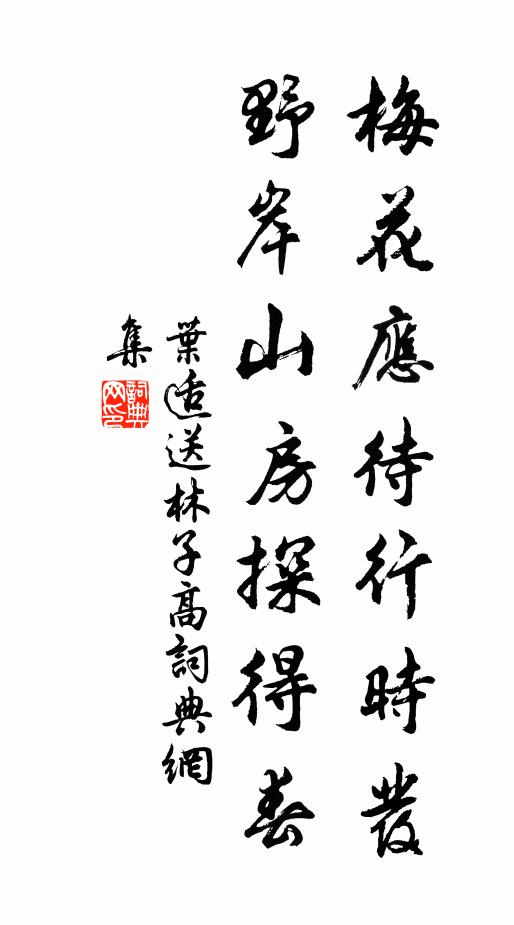 梅花應待行時發
野岸山房探得春
葉适送林子高詞典網
集
詞典网印